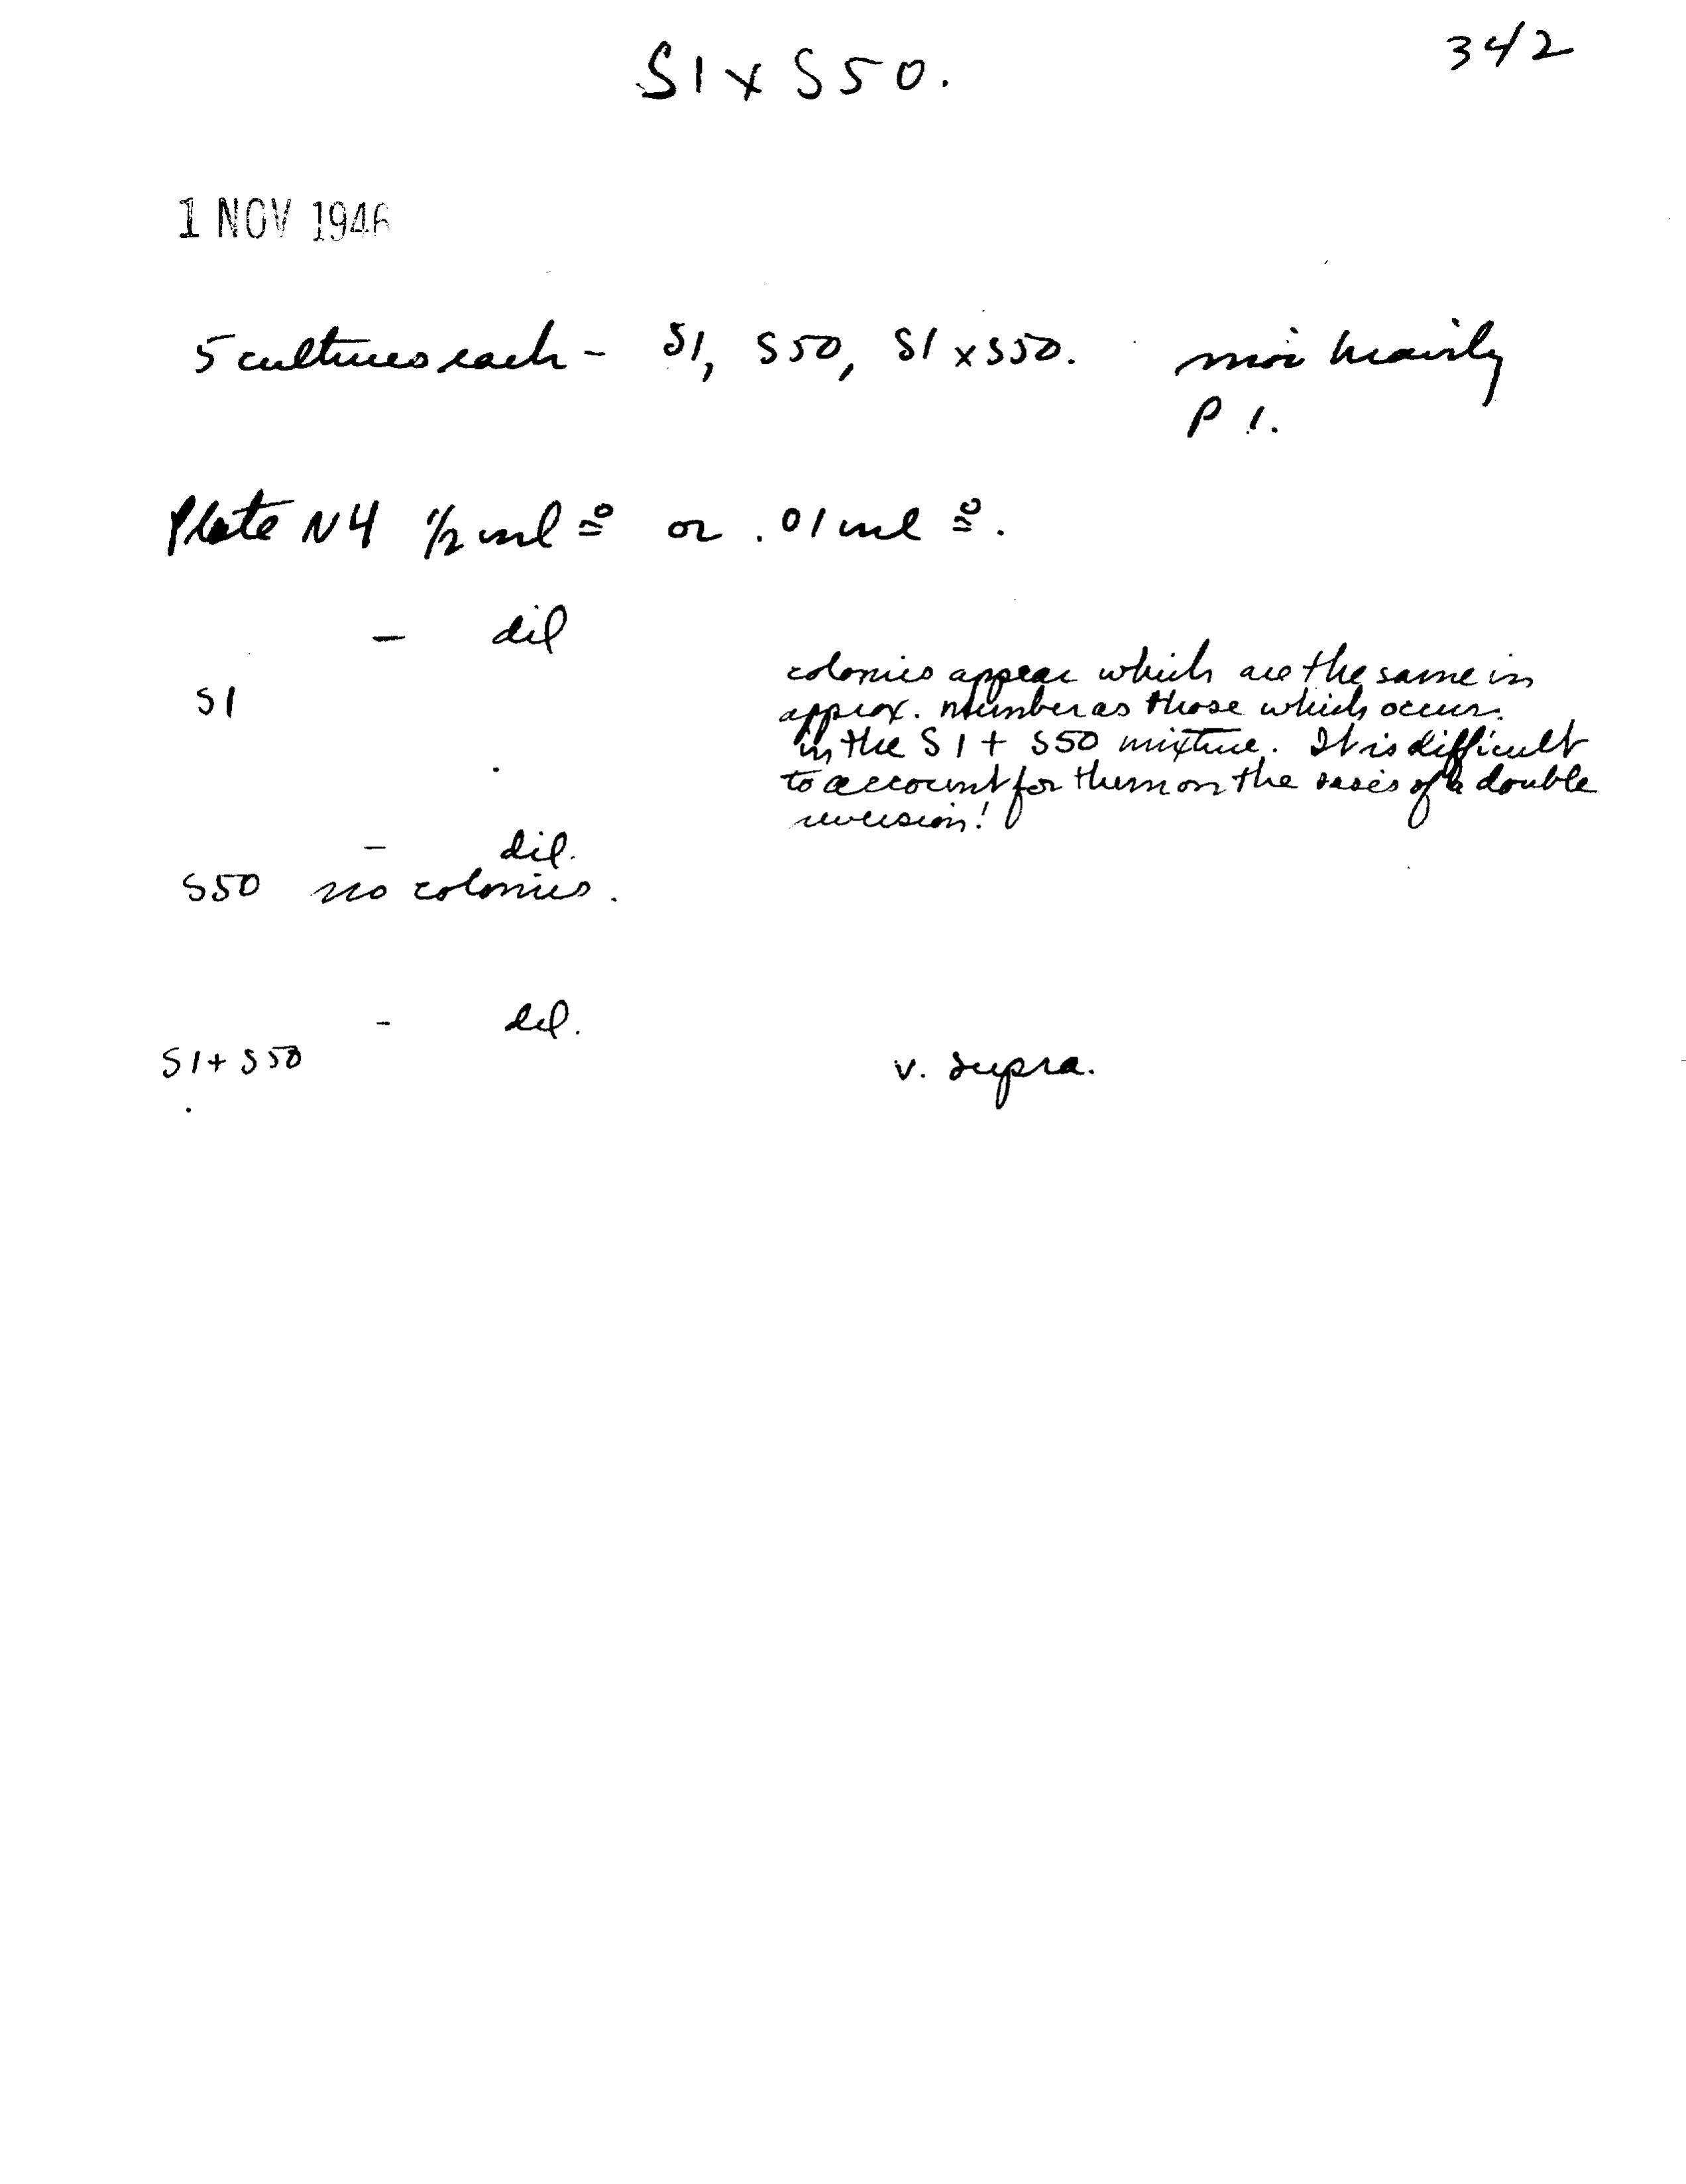 342
S1 x S50.
1 NOV 1946
5 cultures each - S1, S50, S1 x S50.
P 1.
Plate N4 ½ ml ≘ or .01 ml ≘.
- dil
S1
colonies appear which are the same in
approx. number as those which occur
in the S1 + S50 mixture. It is difficult
to account for them on the basis of a double
reversion!
- dil.
S50 no colonies.
- dil.
S1 + S50 v. supra.